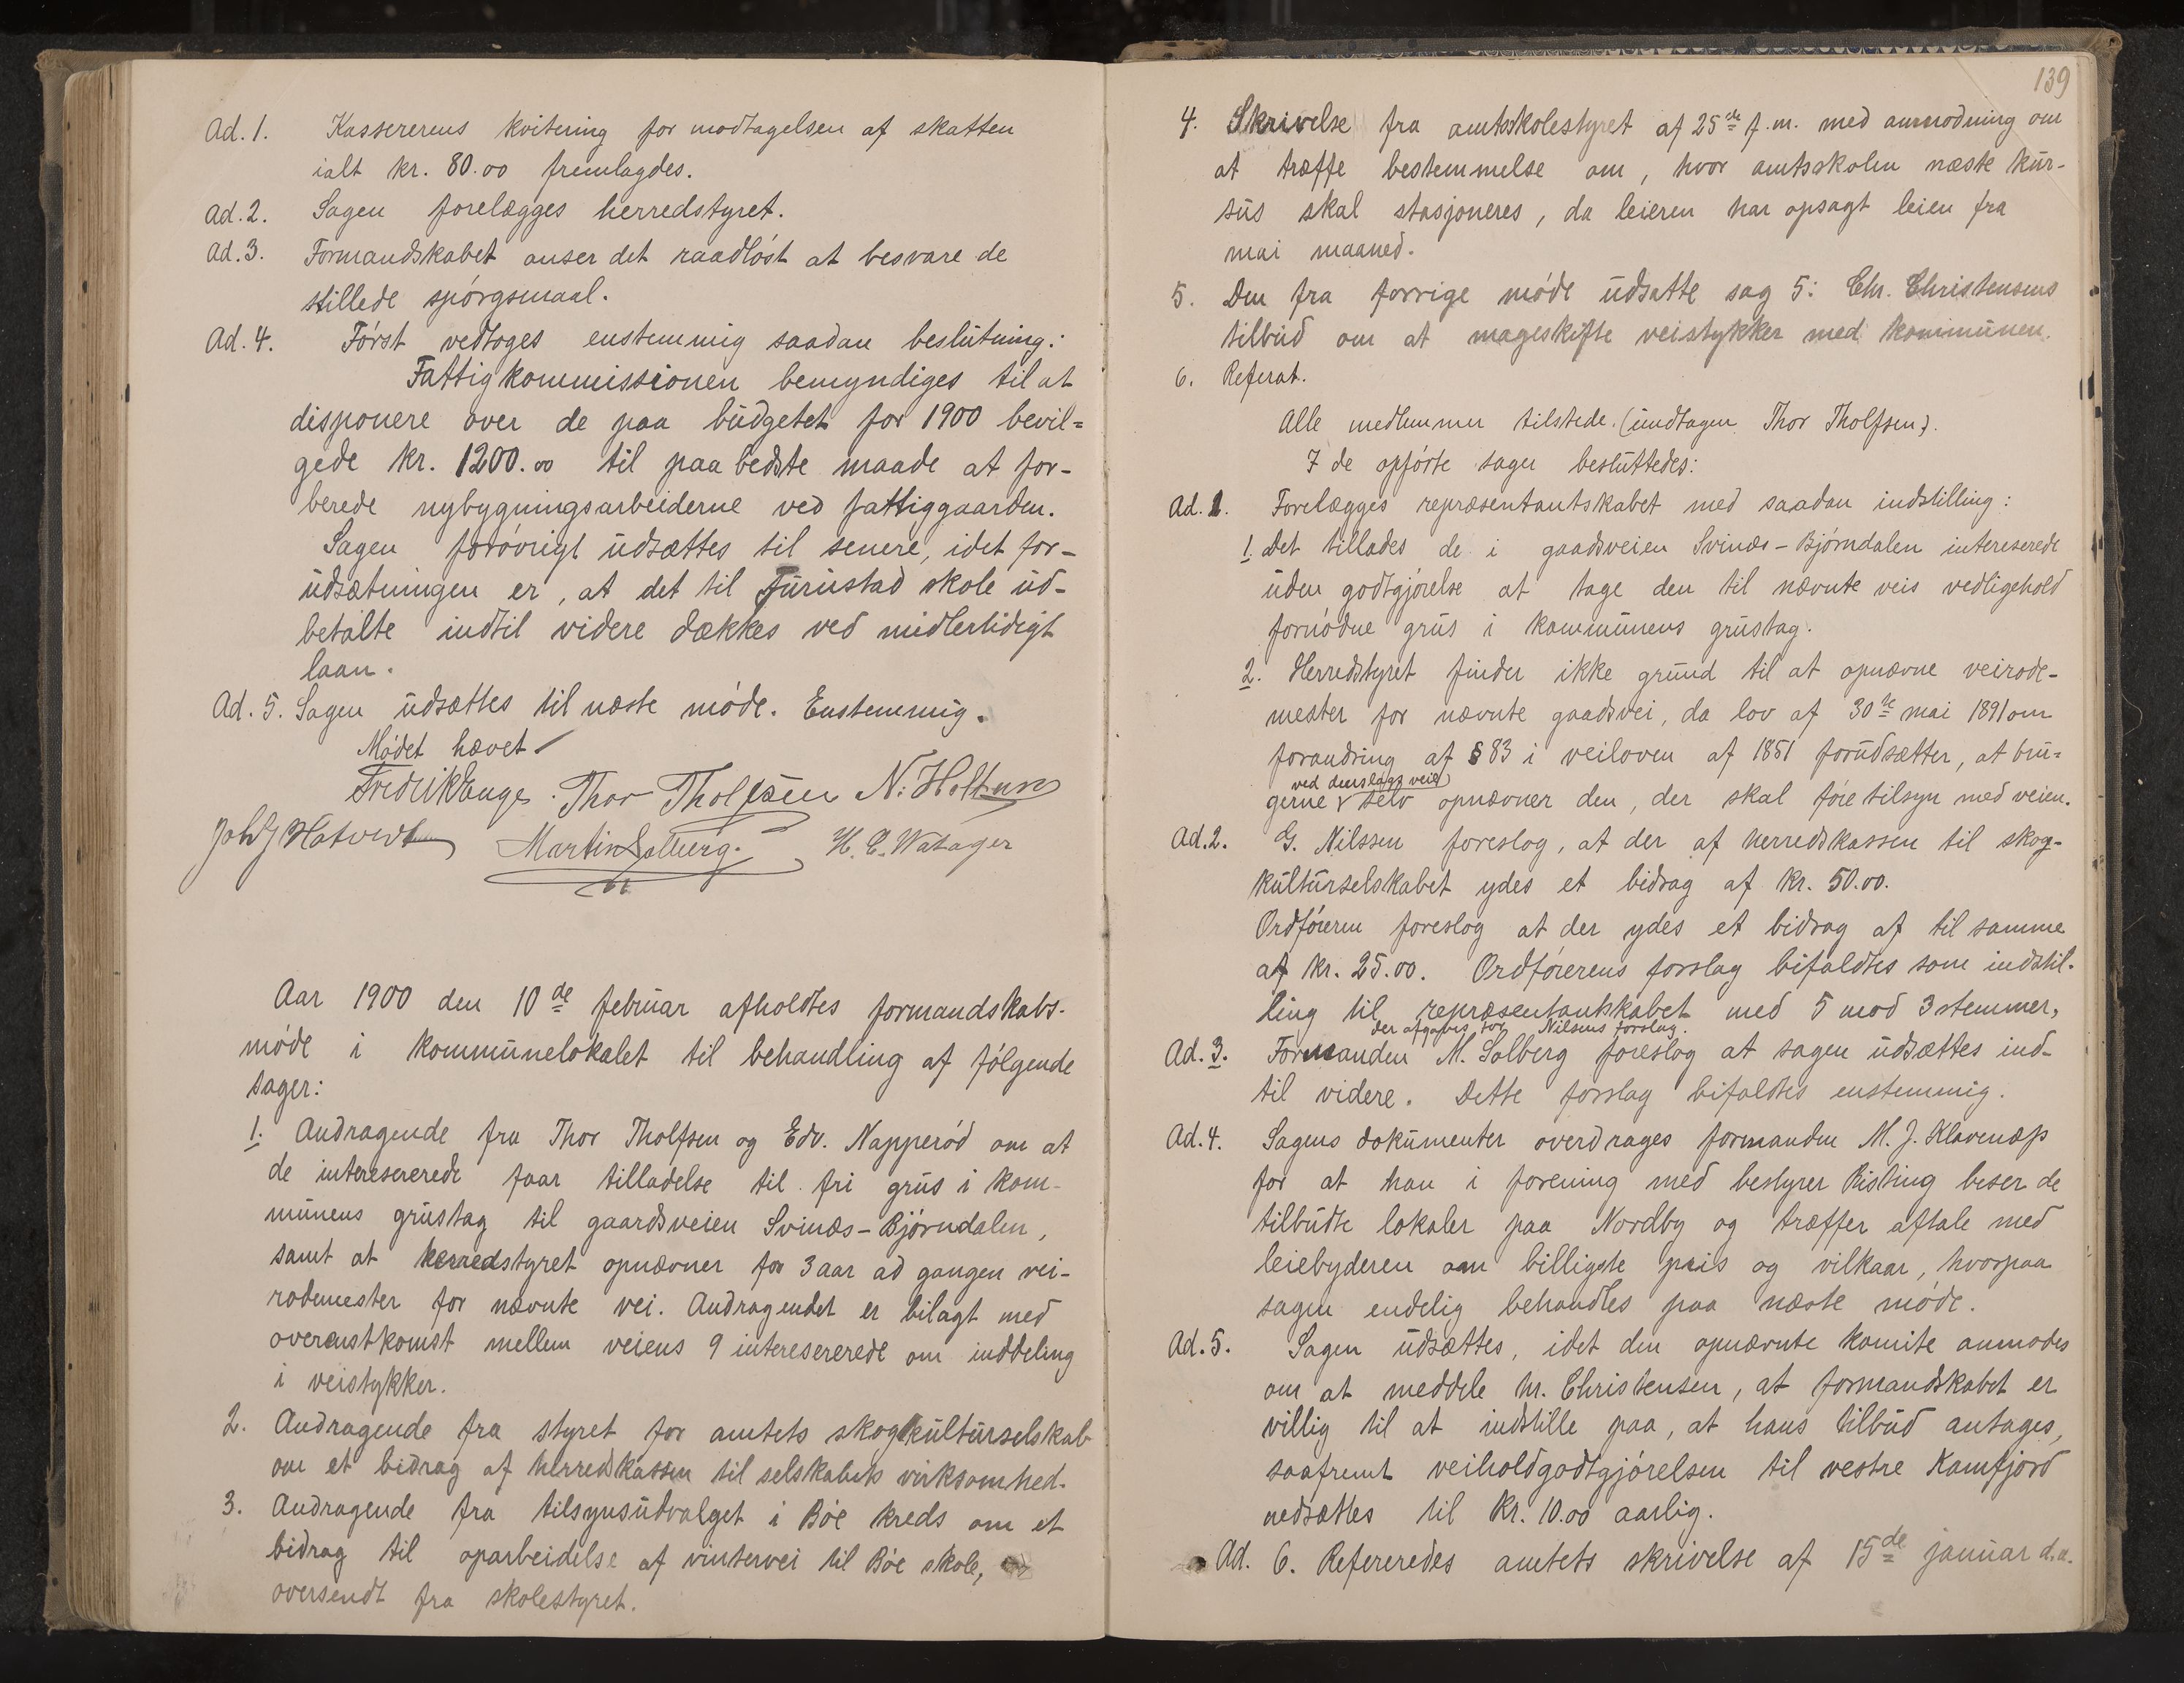 Ad. 1. Kassererens kvitering for modtagelsen af skatten
ialt kr. 80.00 fremlagdes.
Ad. 2. Sagen forelægges herredstyret.
Ad. 3. Formandskabet anser det raadløst at besvare de
stillede spørgsmaal.
Ad. 4. Først vedtoges enstemmig saadan beslutning:
Fattigkommissionen bemyndiges til at
disponere over de paa budgetet for 1900 bevil=
gede kr. 1200.00 til paa bedste maade at for-
berede nybygningsarbeiderne ved fattiggaarden.
Sagen forøvrigt udsættes til senere, idet for-
udsætningen er, at det til Furustad skole ud-
betalte indtil videre dækkes ved midlertidigt
laan.
Ad. 5. Sagen udsættes til næste møde. Enstemmig.
Mødet hævet
Fredrik Lange. Thor Tholfsen N. Holtung
Martin Solberg.
Aar 1900 den 10de februar afholdtes formandskabs-
møde i kommunelokalet til behandling af følgende
sager:
1. Andragende fra Thor Tholfsen og Edv. Napperød om at
de interesererede faar tilladelse til fri grus i kom-
munens grustag til gaardsveien Svinæs-Bjørndalen,
samt at herredstyret opnævner for 3 aar ad gangen vei-
rodemester for nævnte vei. Andragendet er bilagt med
overenstkomst mellem veiens 9 interesererede om inddeling
i veistykker.
2. Andragende fra styret for amtets skogkulturselskab
om et bidrag af herredskassen til selskabets virksomhed.
3. Andragende fra tilsynsudvalget i Bøe kreds om et
bidrag til oparbeidelse af vintervei til Bøe skole,
oversendt fra skolestyret.
139
4. Skrivelse fra amtsskolestyret af 25de f.m. med anmodning om
at træffe bestemmelse om, hvor amtsskolen næste kur-
sus skal stasjoneres, da leieren har opsagt leien fra
mai maaned.
5. Den fra forrige møde udsatte sag 5: Chr. Christensens
tilbud om at mageskifte veistykker med kommunen.
6. Referat.
Alle medlemmer tilstede. (undtagen Thor Tholfsen).
I de opførte sager besluttedes:
Ad. 1. Forelægges repræsentantskabet med saadan indstilling:
1. Det tillades de i gaadsveien Svinæs-Bjørndalen intereserede
uden godtgjørelse at tage den til nævnte veis vedligehold
fornødne grus i kommunens grustag.
2. Herredstyret finder ikke grund til at opnævne veirode-
mester for nævnte gaadsvei, da lov af 30te mai 1891 om
forandring af § 83 i veiloven af 1851 forudsætter, at bru-
ved denslags veie
gerne selv opnævner den, der skal føie tilsyn med veien.
Ad. 2. G. Nilssen foreslog, at der af herredskassen til skog-
kulturselskabet ydes et bidrag af kr. 50.00.
Ordføreren foreslog at der ydes et bidrag af til samme
af kr. 25.00. Ordførerens forslag bifaldtes som indstil-
ling til repræsentantskabet med 5 mod 3 stemmer,
der afgaves for Nilsens forslag.
Ad. 3. Formanden M. Solberg foreslog at sagen udsættes ind-
til videre. Dette forslag bifaldtes enstemmig.
Ad. 4. Sagens dokumenter overdrages formanden M. J. Klavenæs
for at han i forening med bestyrer Risting beser de
tilbudte lokaler paa Nordby og træffer aftale med
leiebyderen om billigste pris og vilkaar, hvorpaa
sagen endelig behandles paa næste møde.
Ad. 5. Sagen udsættes, idet den opnævnte komite anmodes
om at meddele hr. Christensen, at formandskabet er
villig til at indstille paa, at hans tilbud antages,
saafremt veiholdgodtgjørelsen til vestre Kamfjord
nedsættes til kr. 10.00 aarlig.
Ad. 6. Refereredes amtets skrivelse af 15de januar d.a.